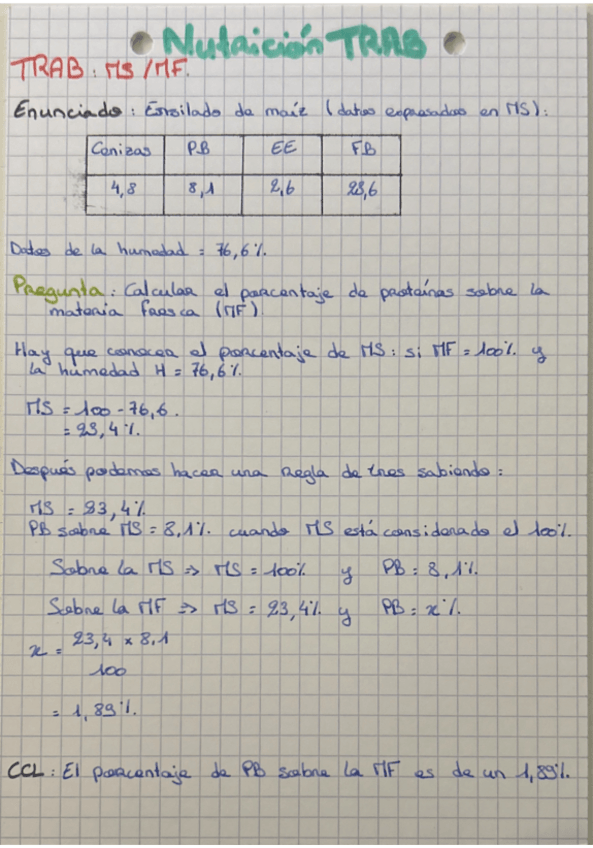 Nutrición TRAB
TRAB : MS / MF.
Enunciado : Ensilado de maíz (datos expresados en MS) :
Cenizas PB EE FB
4,8 8,1 2,6 23,6
Datos de la humedad = 76,6 %.
Pregunta : Calcular el porcentaje de proteínas sobre la
materia fresca (MF).
Hay que conocer el porcentaje de MS : si MF = 100% y
la humedad H = 76,6 %.
MS = 100 - 76,6.
= 23,4 %.
Después podemos hacer una regla de tres sabiendo :
MS = 23,4 %
PB sobre MS = 8,1%. cuando MS está considerado el 100%.
Sobre la MS => MS = 100% y PB = 8,1%.
Sobre la MF => MS = 23,4% y PB = x %.
x = 23,4 × 8,1
100
= 1,89 %.
CCL : El porcentaje de PB sobre la MF es de un 1,89%.